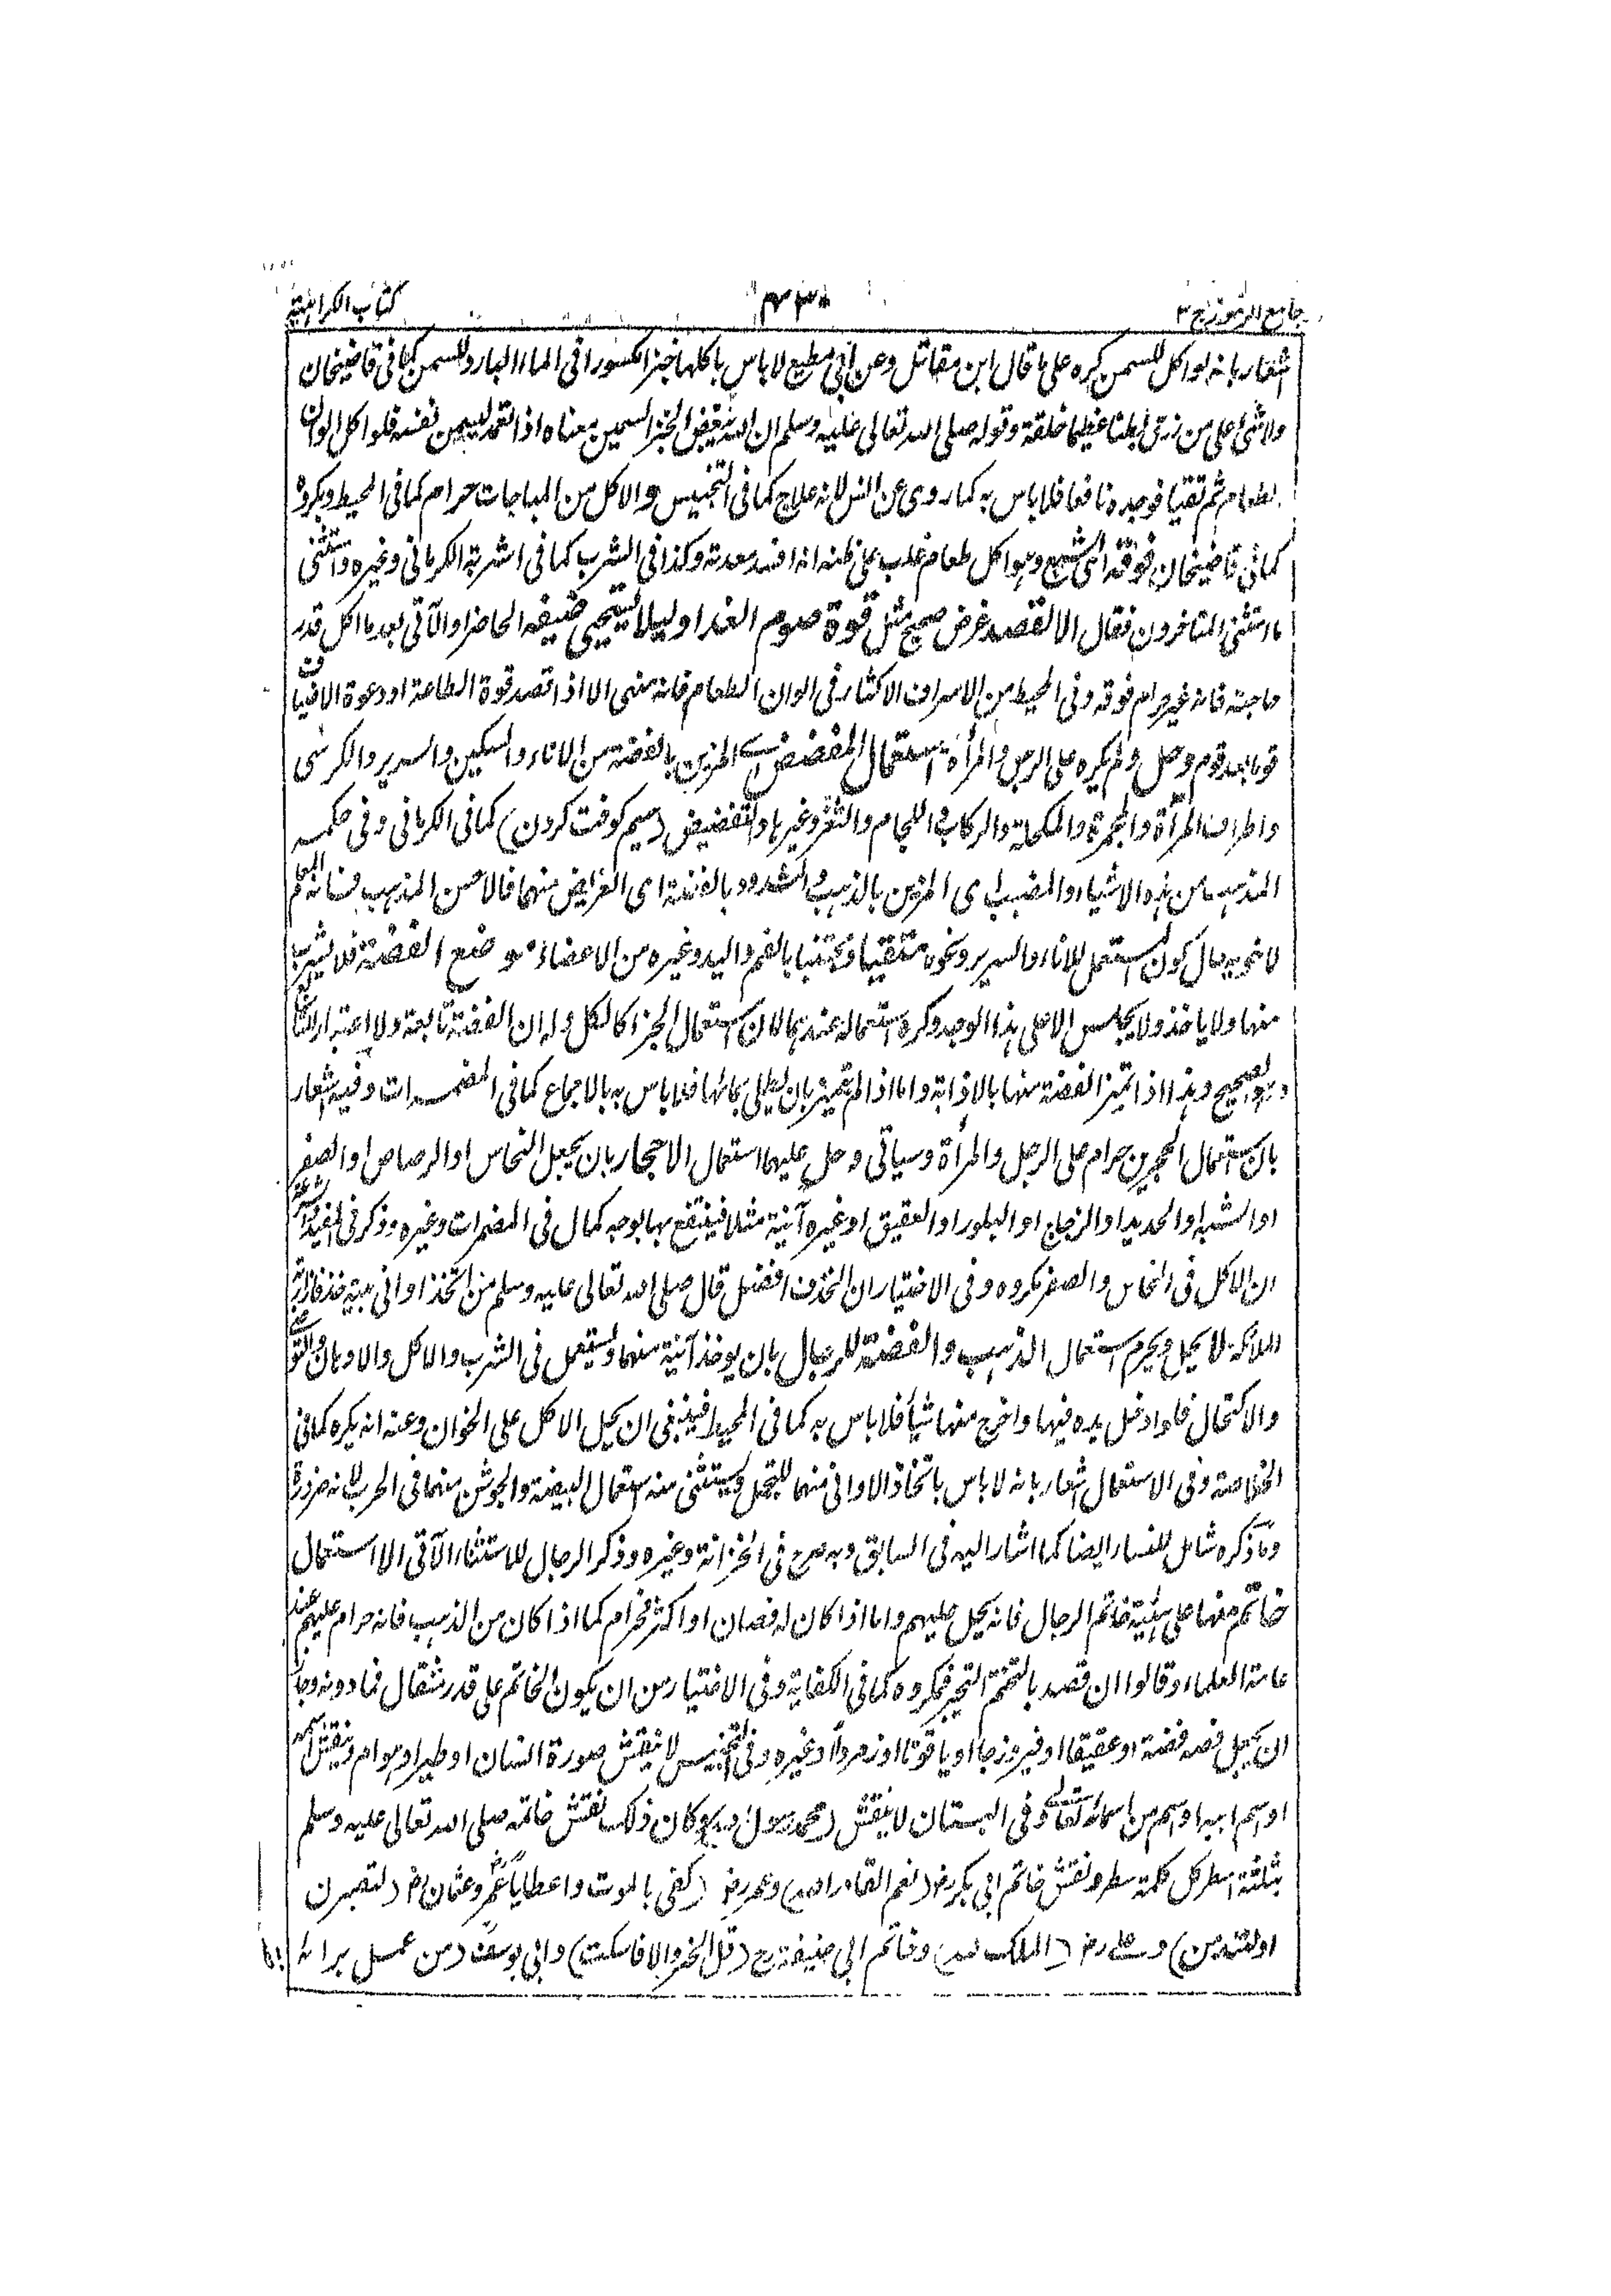 جامع الرموز ج ۳
۴۳۰
كتاب الكراهية
اشعار بانه لو اكل للسمن كره على ما قال ابن مقاتل وعن ابي مطيع لا باس باكلها خبزا مكسورا في الماء البارد للسمن كما في قاضيخان
ولا شئ على من زرق بطنا عظيما خلقة وقوله صلى الله تعالى عليه وسلم ان الله يبغض الحبر السمين معناه اذا تعمد ليسمن نفسه فلو اكل الوان
طعام ثم تقيا فوجده نافعا فلا باس به كما روى عن انس لانه علاج كما في التجنيس والاكل من المباجات حرام كما في المحيط ويكره
كما في قاضيخان فوقه اى الشبع وهو اكل طعام غلب على ظنه انه افسد معدته وكذا في الشرب كما في اشربة الكرماني وغيره واستثنى
ما استثنى المتاخرون فقال الا لقصد غرض صحيح مثل قوة صوم الغد او ليلا يستحيى ضيفه الحاضر او الآتى بعد ما اكل قدر
حاجته فانه غير حرام فوقه وفى المحيط من الاسراف الاكثار فى الوان الطعام فانه منهى الا اذا قصد قوة الطاعة او دعوة الاضياف
قوما بعد قوم وحل ولم يكره على الرجل والمرأة استعمال المفضض اى المزين بالفضة من الاناء والسكين والسرير والكرسى
واطراف المرأة والمجمرة والمكحلة والركاب واللجام والثفر وغيرها والتفضيض (سيم كوفت كردن) كما فى الكرمانى وفى حكمه
المذهب من هذه الاشياء والمضبب اى المزين بالذهب والمشدود بالفضة اى العرايض منهما فالاحسن المذهب فانه لم
لا نحو به حال كون المستعمل للاناء والسرير ونحوها متقيا ومجتنبا بالفم واليد وغيره من الاعضاء موضع الفضة فلا يشرب
منها ولا ياخذ ولا يجلس الا على هذا الوجه وكره استعماله عندهما لان استعمال الجزء كالكل وله ان الفضة تابعة ولا اعتبار للتابع
وهو الصحيح وهذا اذا تميز الفضة منها بالاذابة واما اذا لم تتميز بان يطلى بمائها فلا باس به بالاجماع كما فى المضمرات وفيه اشعار
بان استعمال الحجرين حرام على الرجل والمرأة وسياتى وحل عليهما استعمال الاحجار بان يجعل النحاس او الرصاص او الصفر
او الشبه او الحديد او الزجاج او البلور او العقيق او غيره آنية مثلا فينتفع بها بوجه كمال فى المضمرات وغيره وذكر فى المفيد
ان الاكل فى النحاس والصفر مكروه وفى الاختيار ان الخزف افضل قال صلى الله تعالى عليه وسلم من اتخذ اوانى بيته خزفا زارته
الملائكة لا يحل ويحرم استعمال الذهب والفضة للرجال بان يوخذ آنية منهما ويستعمل فى الشرب والاكل والادهان والتوضى
والاكتحال فلو ادخل يده فيها واخرج منها شيأ فلا باس به كما فى المحيط فينبغى ان يحل الاكل على الخوان وعنه انه يكره كما فى
الخلاصة وفى الاستعمال اشعار بانه لا باس باتخاذ الاوانى منهما للتجمل ويستثنى منه استعمال البيضة والجوشن منهما فى الحرب لانه ضرورة
وما ذكره شامل للنساء ايضا كما اشار اليه فى السابق وبه صرح فى الخزانة وغيره وذكر الرجال للاستثناء الآتى الا استعمال
خاتم منها على هيئة خاتم الرجال فانه يحل عليهم واما اذا كان له فصان او اكثر فحرام كما اذا كان من الذهب فانه حرام عليهم عند
عامة العلماء وقالوا ان قصد بالتختم التجبر فمكروه كما فى الكفاية وفى الاختيار من ان يكون الخاتم على قدر مثقال فما دونه وجاز
ان يجعل فصه فضة او عقيقا او فيروزجا او ياقوتا او زمردا وغيره وفى التجنيس لا ينقش صورة انسان او طير او هوام وينقش اسمه
او اسم ابيه او اسم من اسمائه تعالى وفى البستان لا ينقش (محمد رسول الله) وكان ذلك نقش خاتمه صلى الله تعالى عليه وسلم
بثلثة اسطر كل كلمة سطر ونقش خاتم ابى بكر رضـ (نعم القادر الله) وعمر رضـ (كفى بالموت واعظا يا عمر) وعثمان رضـ (لتصبرن
او لتندمن) وعلى رضـ (الملك لله) وخاتم ابى حنيفة رح (قل الخير والا فاسكت) وابى يوسف (من عمل برائه